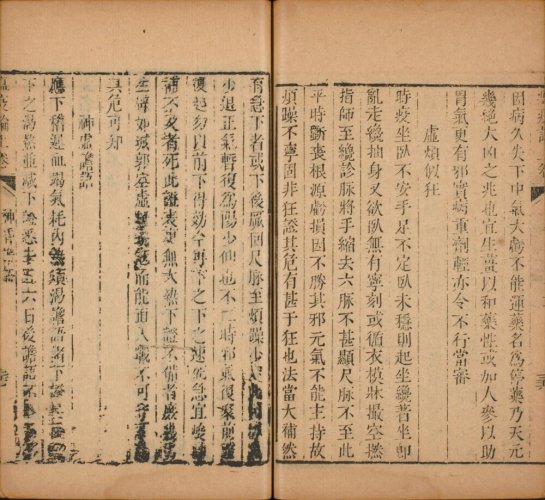 因病久失下中氣大虧不能運藥名爲停藥乃天元
幾絕大凶之兆也宜生薑以和藥性或加人參以助
胃氣更有邪實病重劑輕亦令不行當審
虛煩似狂
時疫坐臥不安手足不定臥未穩則起坐纔著坐即
亂走纔抽身又欲臥無有寧刻或循衣摸牀撮空撚
指師至纔診脈將手縮去六脈不甚顯尺脈不至此
平時斵喪根源虧損因不勝其邪元氣不能主持故
煩躁不寧固非狂證其危有甚于狂也法當大補然
有急下者或下後厥回尺脈至煩躁少定
少退正氣暫復微陽少伸也不二時邪氣復聚前
復起勿以前下得效今再下之下之速死急宜峻
補不及者死此證表裏無大熱下證不備者庶幾可
生譬如城郭空虛雖殘而能直入戰不可
其危可知
神虛譫語
應下稽遲血竭氣耗內熱煩渴譫語諸下證具
下之渴熱並減下證悉去五六日後譫語不